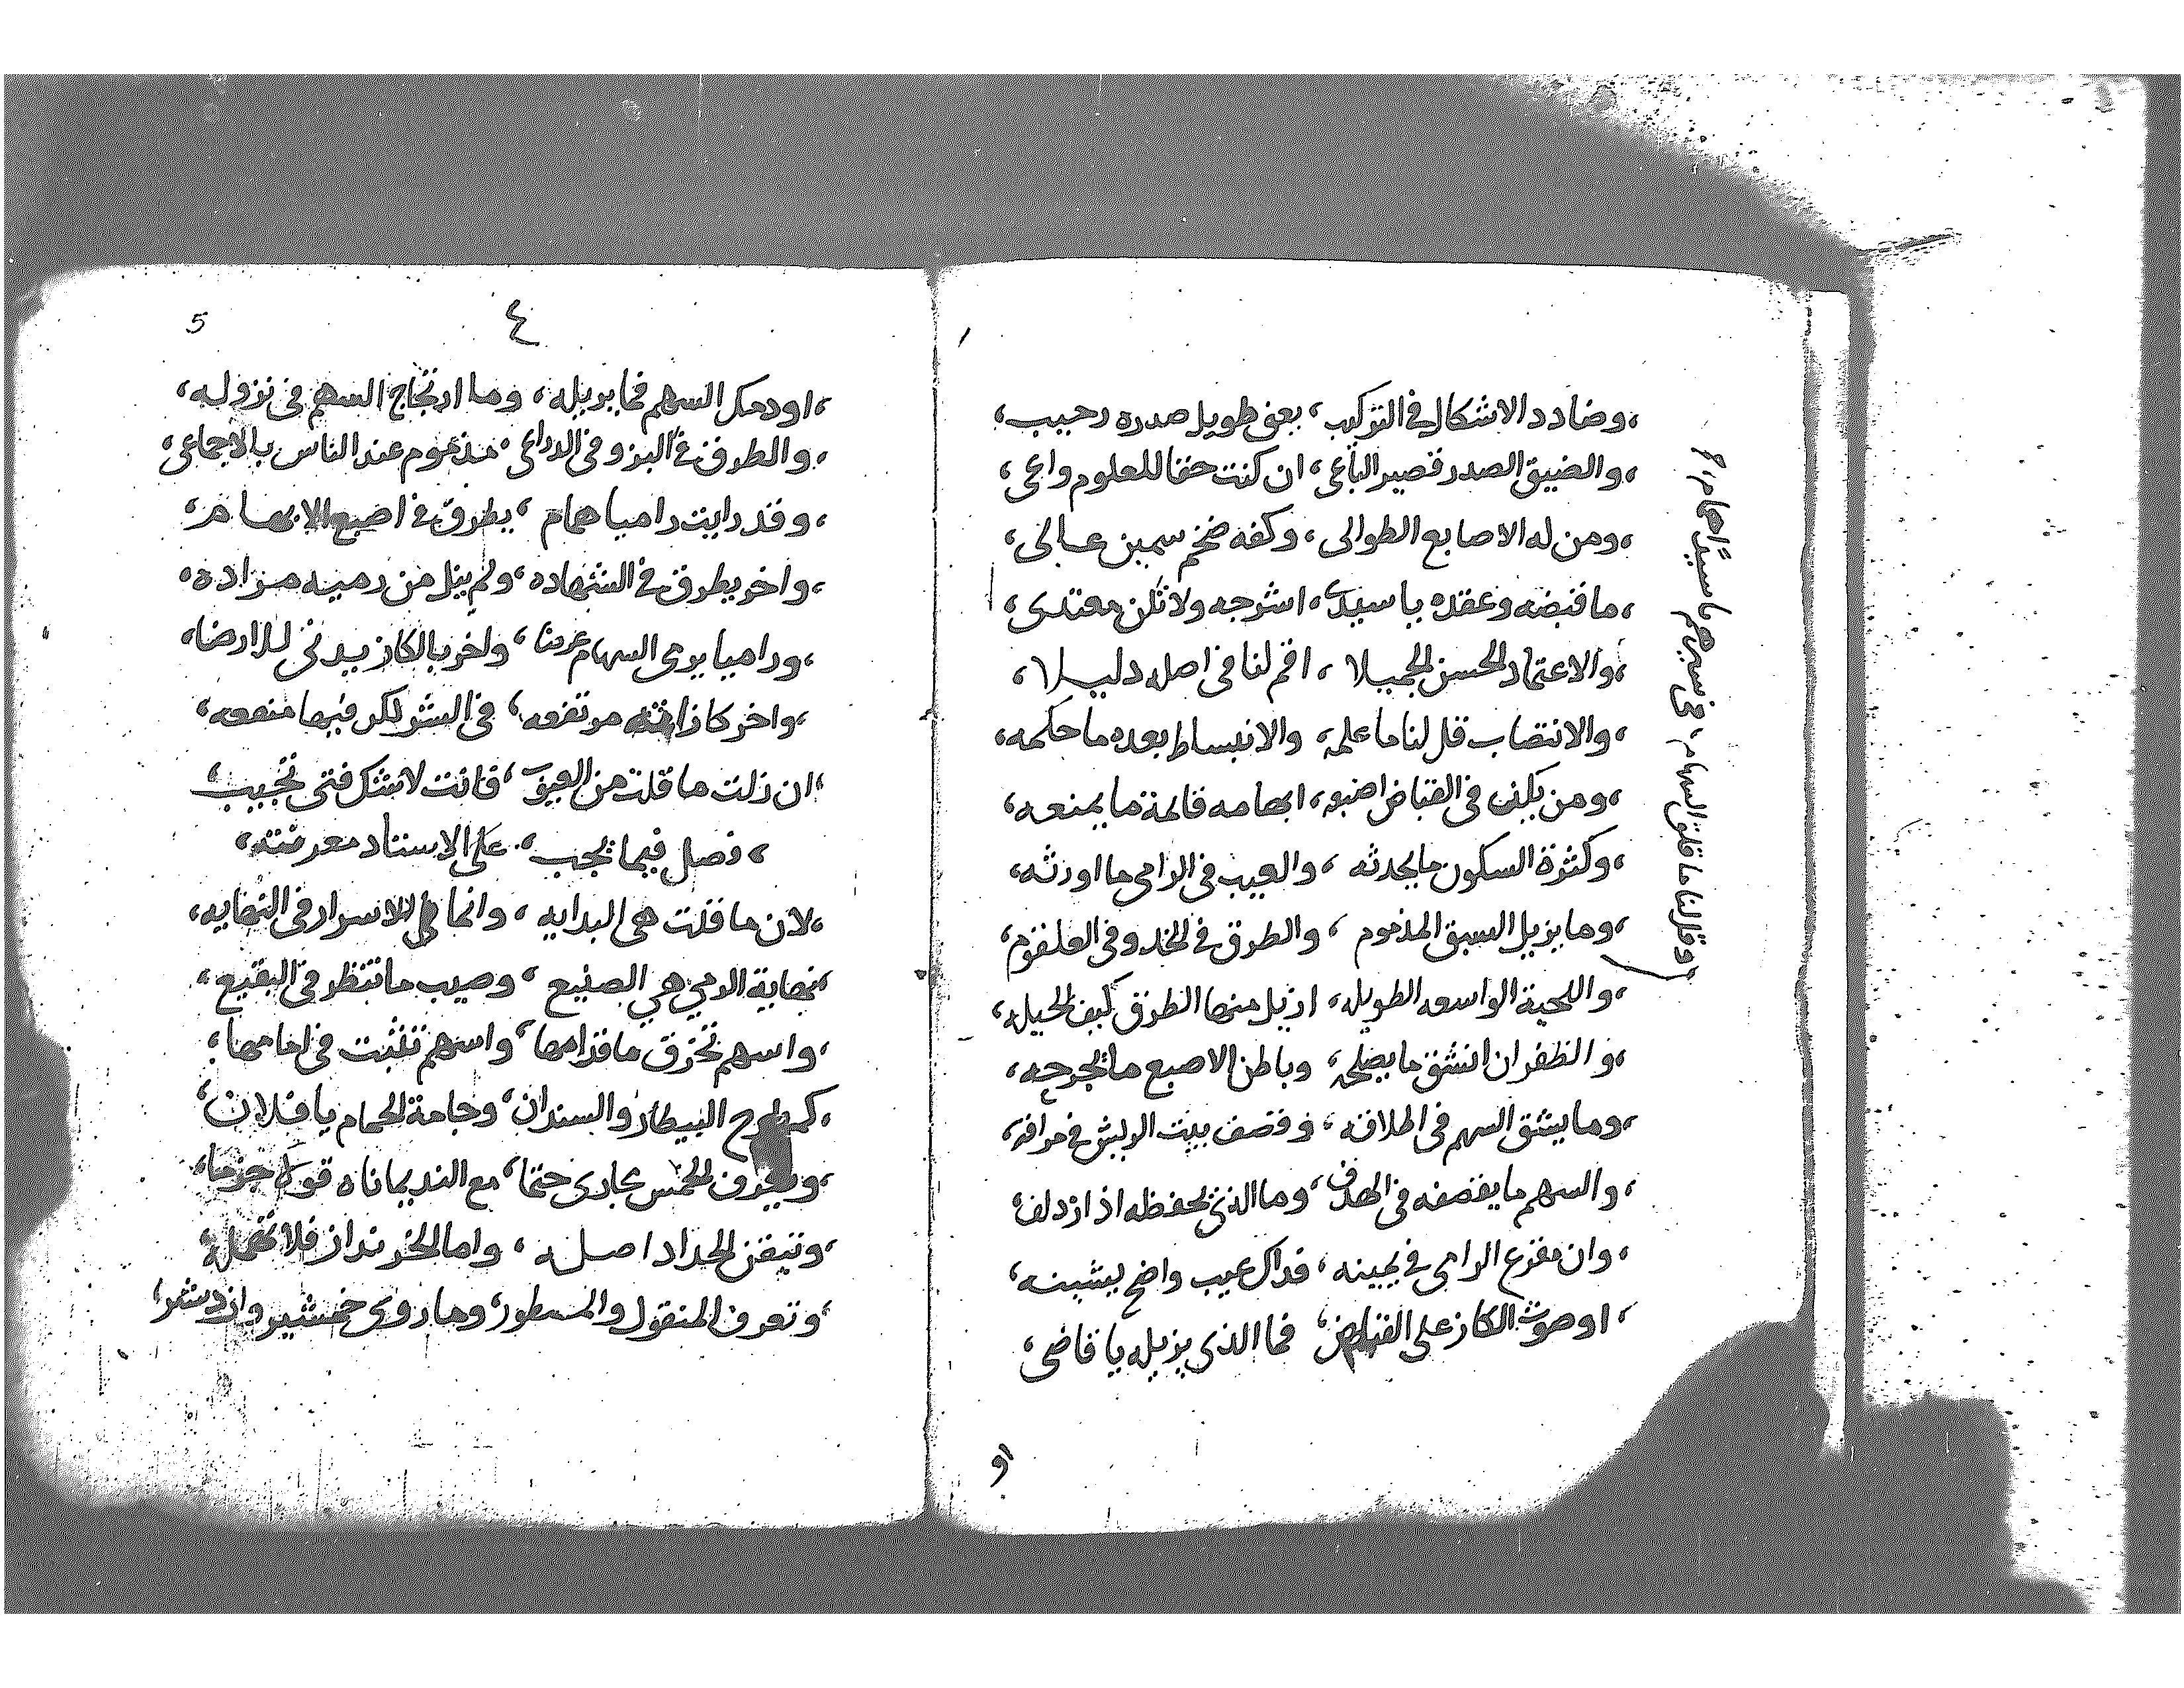 وضادد الاشكال في التركيب، بعنق طويل صدره رحيب،
والضيق الصدر قصير الباع، ان كنت حقا للعلوم واعى،
ومن له الاصابع الطوالى، وكفه ضخم سمين عالى،
ما قبضه وعقده يا سيدى، اشرحه ولا تكن معتدى،
والاعتماد الحسن الجميلا، اقم لنا فى اصله دليلا،
والانتصاب قل لنا ما علمه، والانبساط بعده ما حكمه،
ومن يكن فى القباض اصبعه، ابهامه قائمة ما يمنعه،
وكثرة السكون ما يحدثه، والعيب فى الرامى ما اورثه،
وما يزيل السبق المذموم، والطرق في الخد وفى العلقوم،
واللحية الواسعه الطويله، ازيل منها الطرق كيف الحيله،
والظفر ان انشق ما يصلحه، وباطن الاصبع ما يجرحه،
وما يشق السهم فى اطلاقه، وقصف بيت الريش في مراقه،
والسهم ما يقصفه فى الهدف، وما الذى يحفظه اذ ازدلف،
وان مقزع الرامى في يمينه، فداك عيب واضح يشينه،
او صوت الكاز على القباض، فما الذى يزيله يا قاضى،
او
وقل لنا ما قلق السهام، فى سيرهم يا سيدا همام
٤
5
او دمكر السهم فما يزيله، وما ارتجاج السهم فى نزوله،
والطرق في البز وفى الدراع، مذموم عند الناس بالاجماع،
وقد رايت راميا همام، يطرق في اصبع الابهام،
واخر يطرق في الشهاده، ولم ينل من رميه مراده،
وراميا يرمى السهام عرضا، واخر بالكاز يدنى للارضا،
واخر كازاته مرتفعه، فى الشر لكن فيها منفعه،
ان زلت ما قلت من العيوب، فانت لا شك فتى نجيب،
فصل فيما يجب، على الاستاد معرفته،
لان ما قلت هى البدايه، وانما الاسرار فى النهايه،
نهاية الرمي هي الصنيع، وصيب ما تنظر فى البقيع،
واسهم تخرق ما قدامها، واسهم تثبت فى امامها،
كمطرح البيطار والسندان، وجامة الحمام يا فلان،
ويعرف الخمس مجارى حتما، مع النديمانات قولا جزما،
وتيقن الحداد اصله، واما الخرنداز فلا تمله،
وتعرف المنقول والمسطور، وما روى خشير وازدشر،